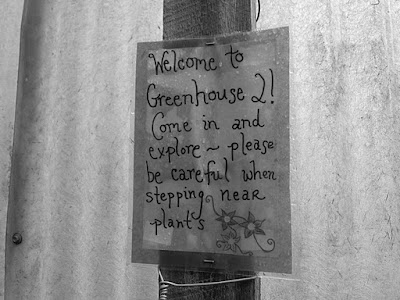 Welcome to
Greenhouse 2!
Come in and
explore ~ please
be careful when
stepping near
plants